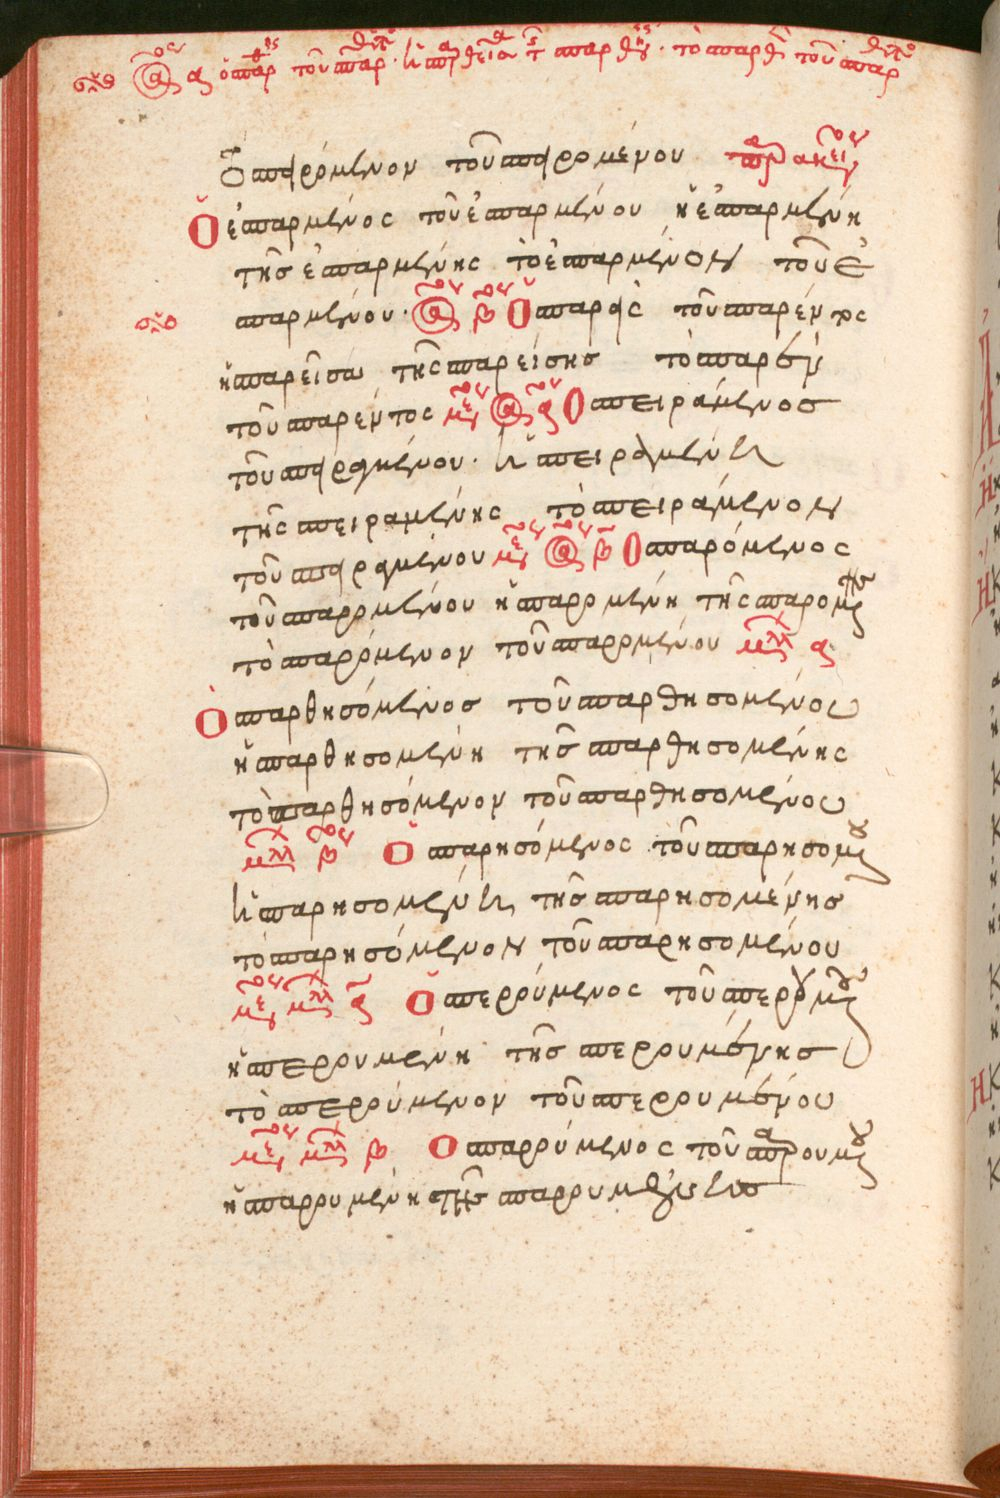 ὁ σπαρ τοῦ σπαρ ἡ σπαρθεῖσα τ σπαρθ τὸ σπαρθ τοῦ σπαρ
Τὸ σπειρόμενον τοῦ σπειρομένου παρακει
Ὁ ἐσπαρμένος τοῦ ἐσπαρμένου ἡ ἐσπαρμένη
τῆς ἐσπαρμένης τὸ ἐσπαρμένον τοῦ ἐ
σπαρμένου· β Ὁ σπαρεὶς τοῦ σπαρέντος
ἡ σπαρεῖσα τῆς σπαρείσης τὸ σπαρὲν
τοῦ σπαρέντος με α Ὁ σπειράμενος
τοῦ σπειραμένου· ἡ σπειραμένη
τῆς σπειραμένης τὸ σπειράμενον
τοῦ σπειραμένου με β Ὁ σπαρόμενος
τοῦ σπαρομένου ἡ σπαρομένη τῆς σπαρομ
τὸ σπαρόμενον τοῦ σπαρομένου μελλ α
Ὁ σπαρθησόμενος τοῦ σπαρθησομένου
ἡ σπαρθησομένη τῆς σπαρθησομένης
τὸ σπαρθησόμενον τοῦ σπαρθησομένου
μελλ β Ὁ σπαρησόμενος τοῦ σπαρησομ
ἡ σπαρησομένη τῆς σπαρησομένης
τὸ σπαρησόμενον τοῦ σπαρησομένου
με μελλ α Ὁ σπερούμενος τοῦ σπερουμ
ἡ σπερουμένη τῆς σπερουμένης
τὸ σπερούμενον τοῦ σπερουμένου
με μελλ β Ὁ σπαρούμενος τοῦ σπαρουμ
ἡ σπαρουμένη τῆς σπαρουμένης